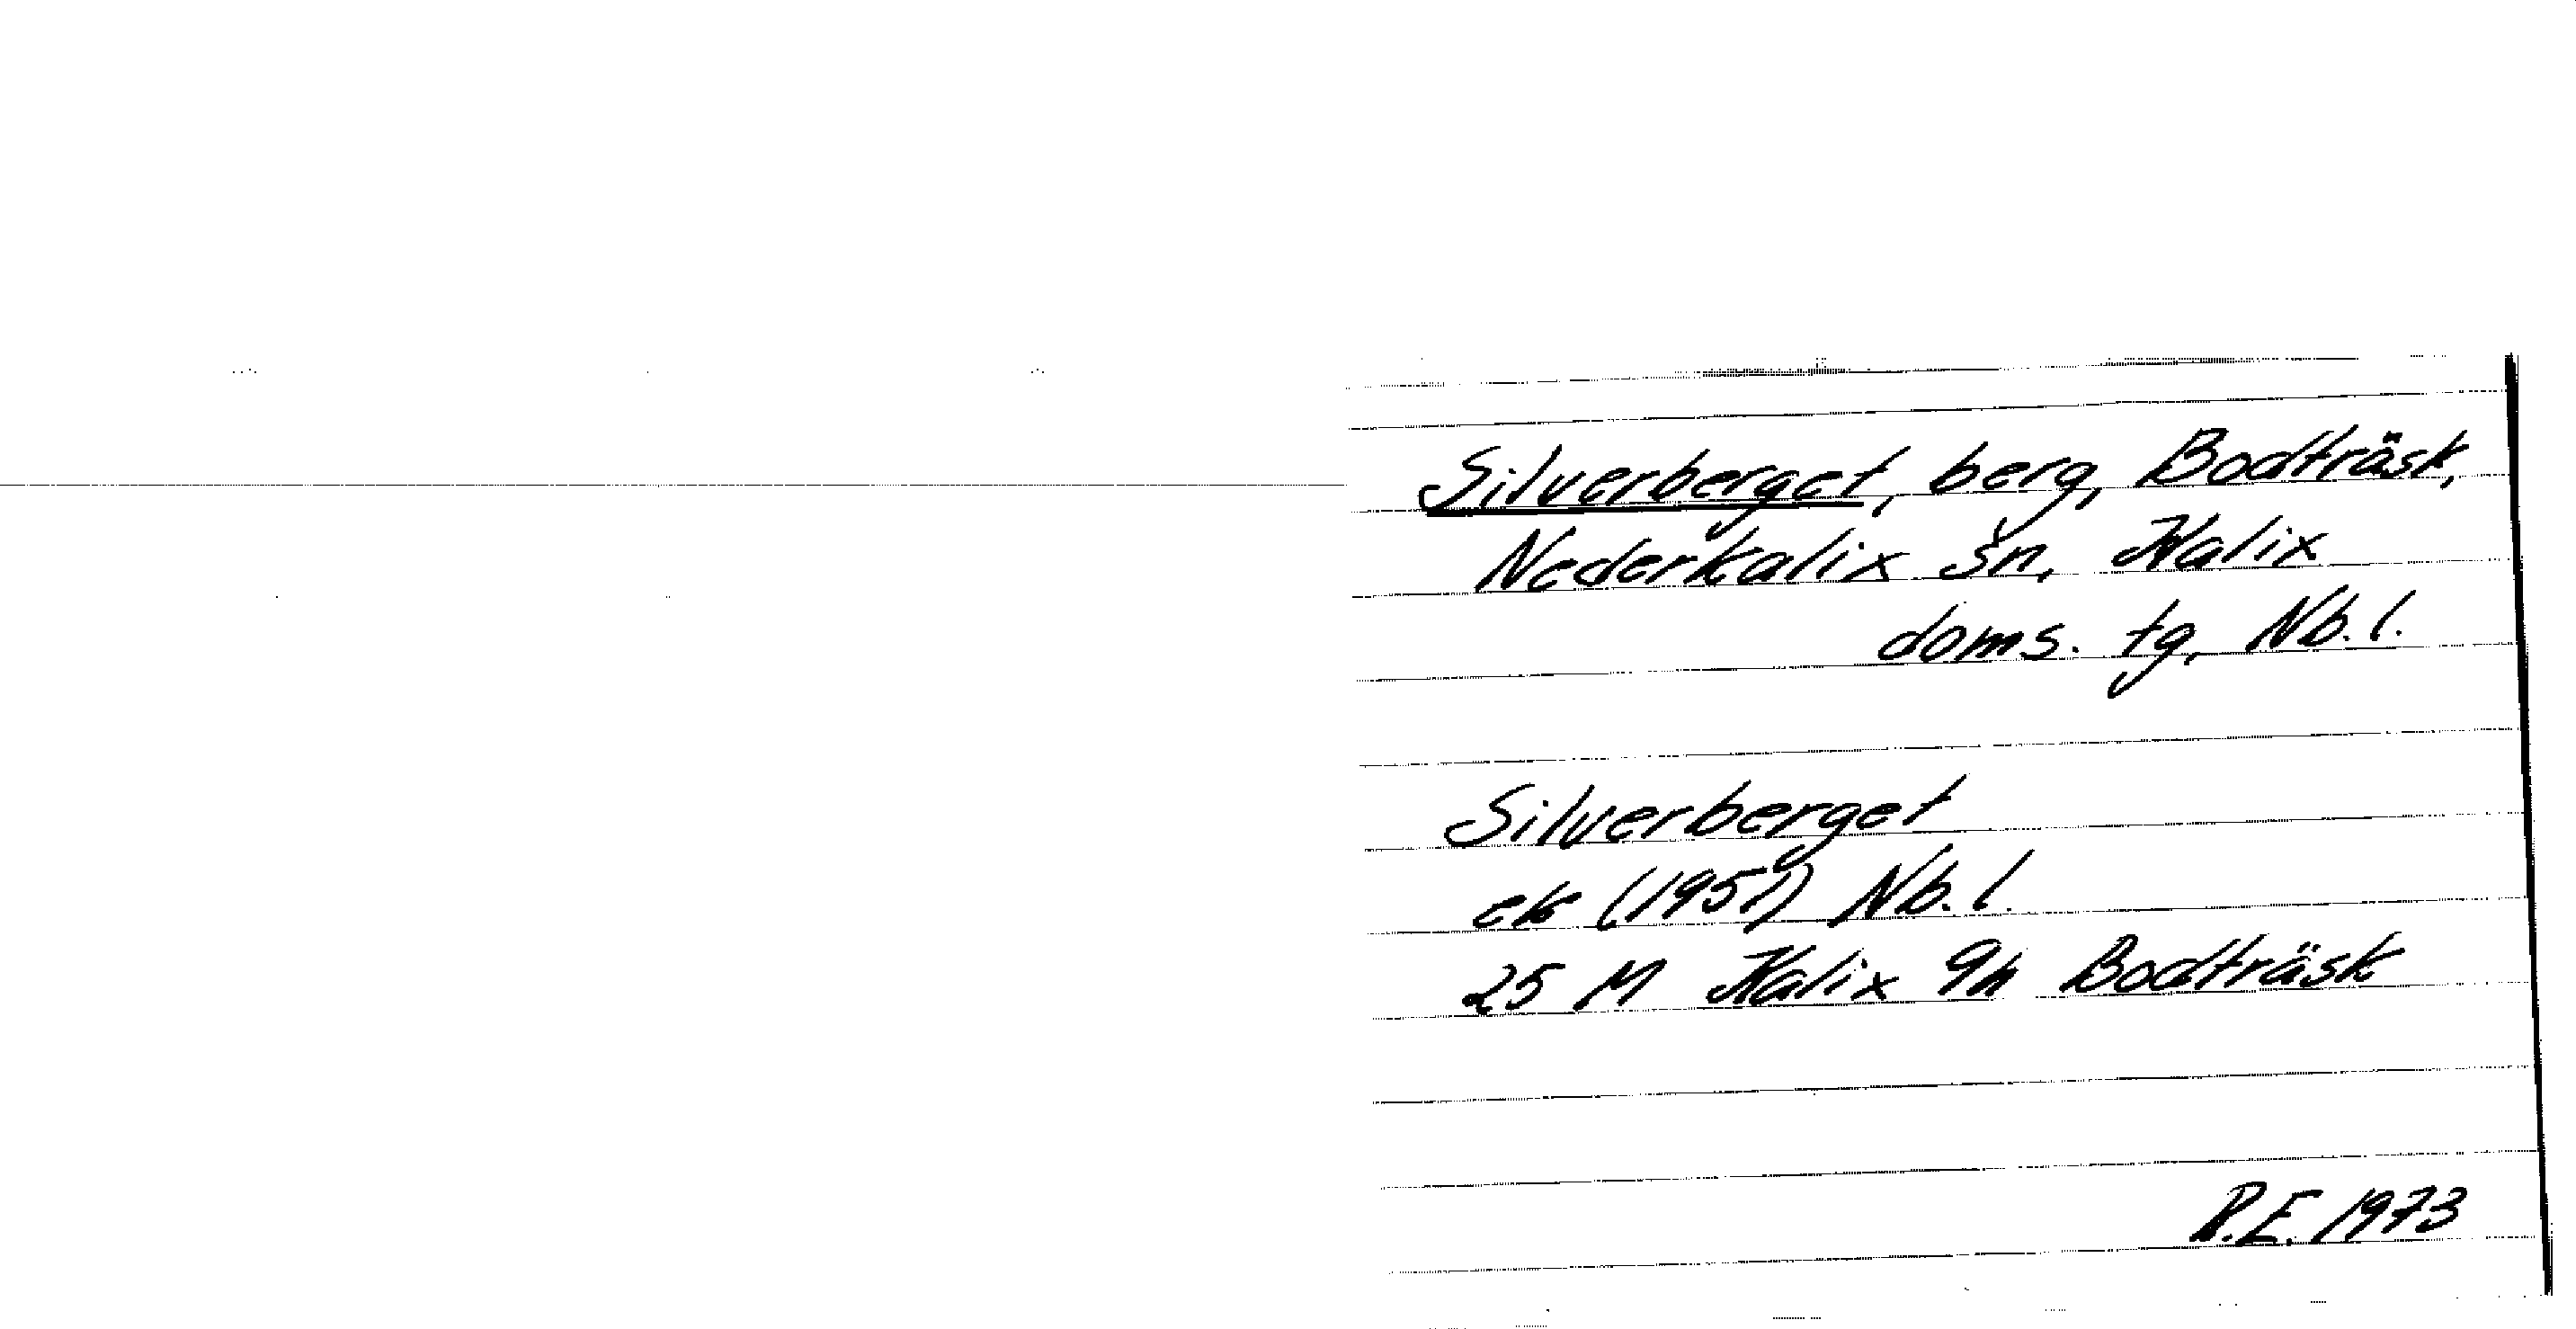 Silverberget, berg, Bodträsk,
Nederkalix sn, Kalix
doms. tg, Nb. l.
Silverberget
ek (1951) Nb. l.
25 M Kalix 9h Bodträsk
R.E. 1973